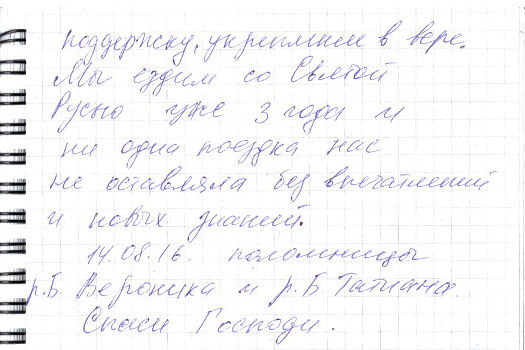 поддержку, укрепление в вере.
Мы ездим со Святой
Русью уже 3 года и
ни одна поездка нас
не оставляла без впечатлений
и новых знаний.
14.08.16. паломницы
р.Б. Вероника и р.Б. Татиана.
Спаси Господи.